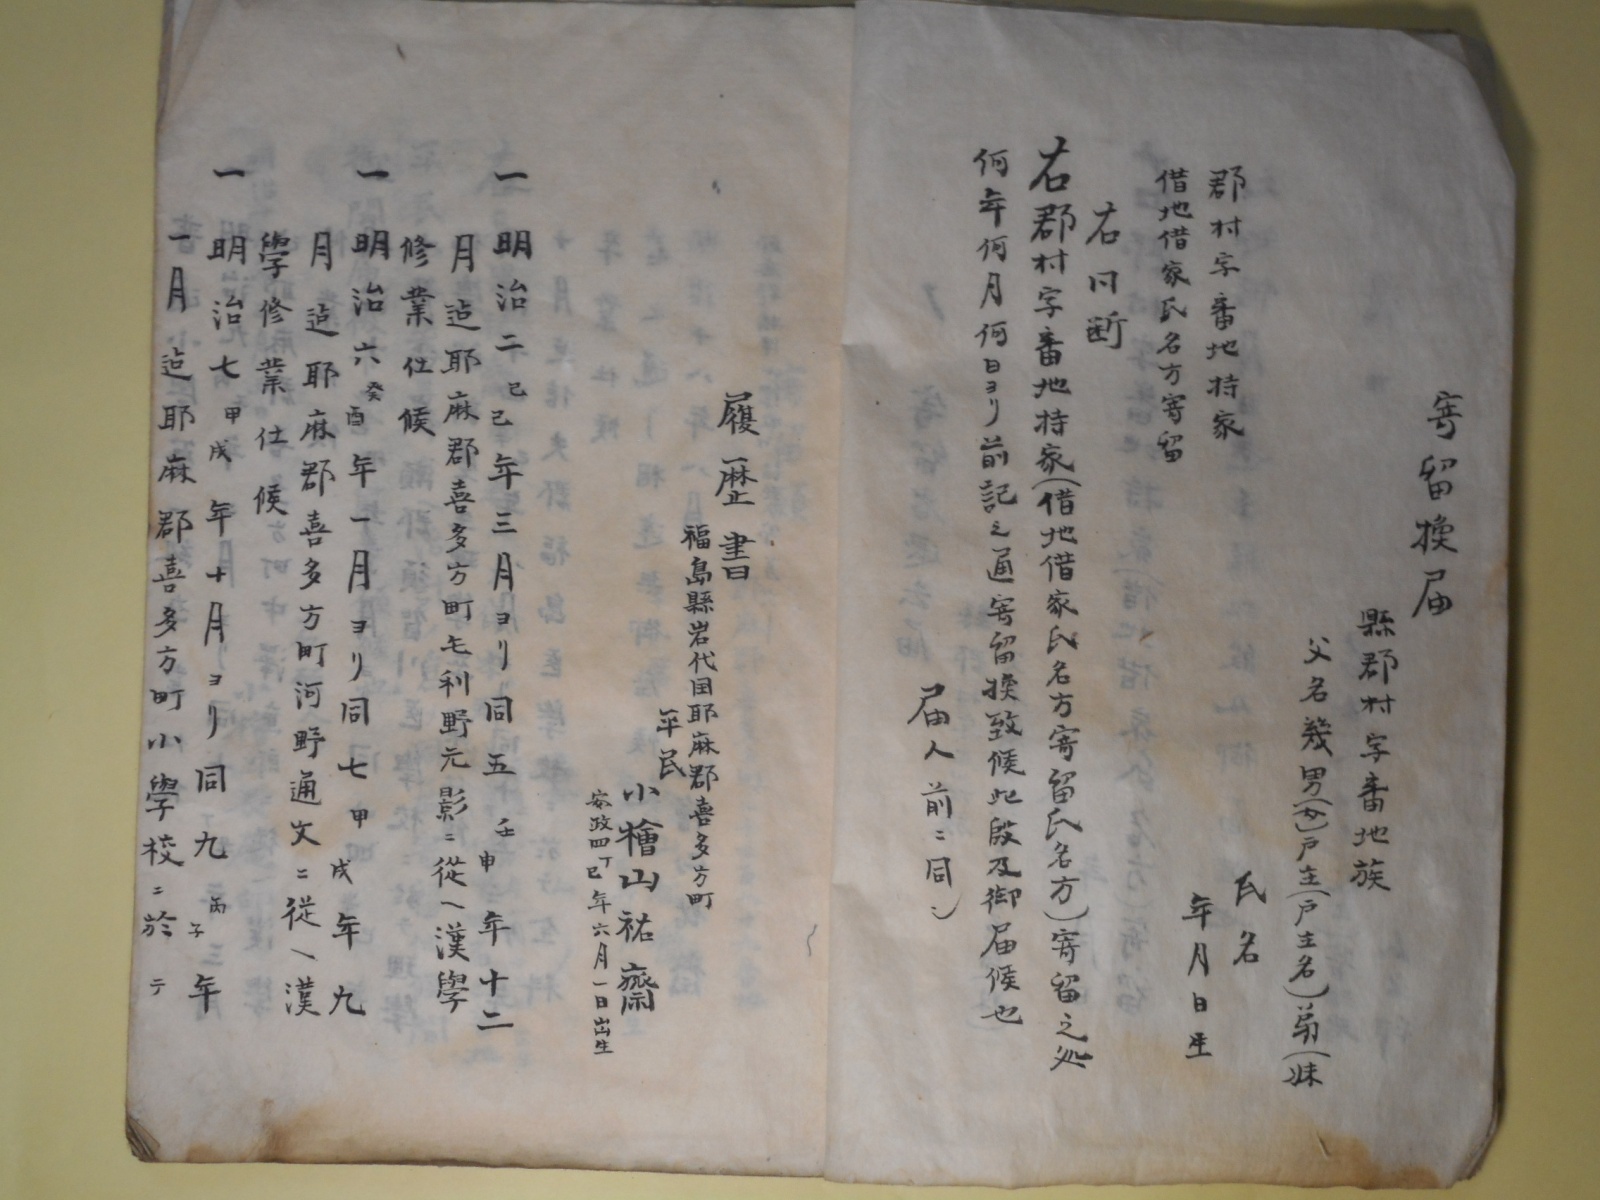 寄留換届
縣郡村字番地族
父名幾男(女)戸主(戸主名)弟(妹
氏名
年月日生
郡村字番地持家
借地借家氏名方寄留
右同断
右郡村字番地持家(借地借家氏名方寄留氏名方)寄留之処
何年何月何日ヨリ前記之通寄留換致候此段及御届候也
届人前ニ同シ
履歴書
福島縣岩代国耶麻郡喜多方町
平民
小檜山祐齋
安政四丁巳年六月一日出生
一明治二己巳年三月ヨリ同五壬申年十二
月迠耶麻郡喜多方町毛利野元影ニ從ヘ漢學
修業仕候
一明治六癸酉年一月ヨリ同七甲戌年九
月迠耶麻郡喜多方町河野通文ニ從ヘ漢
學修業仕候
一明治七甲戌年十月ヨリ同九丙子年
一月迠耶麻郡喜多方町小學校ニ於テ